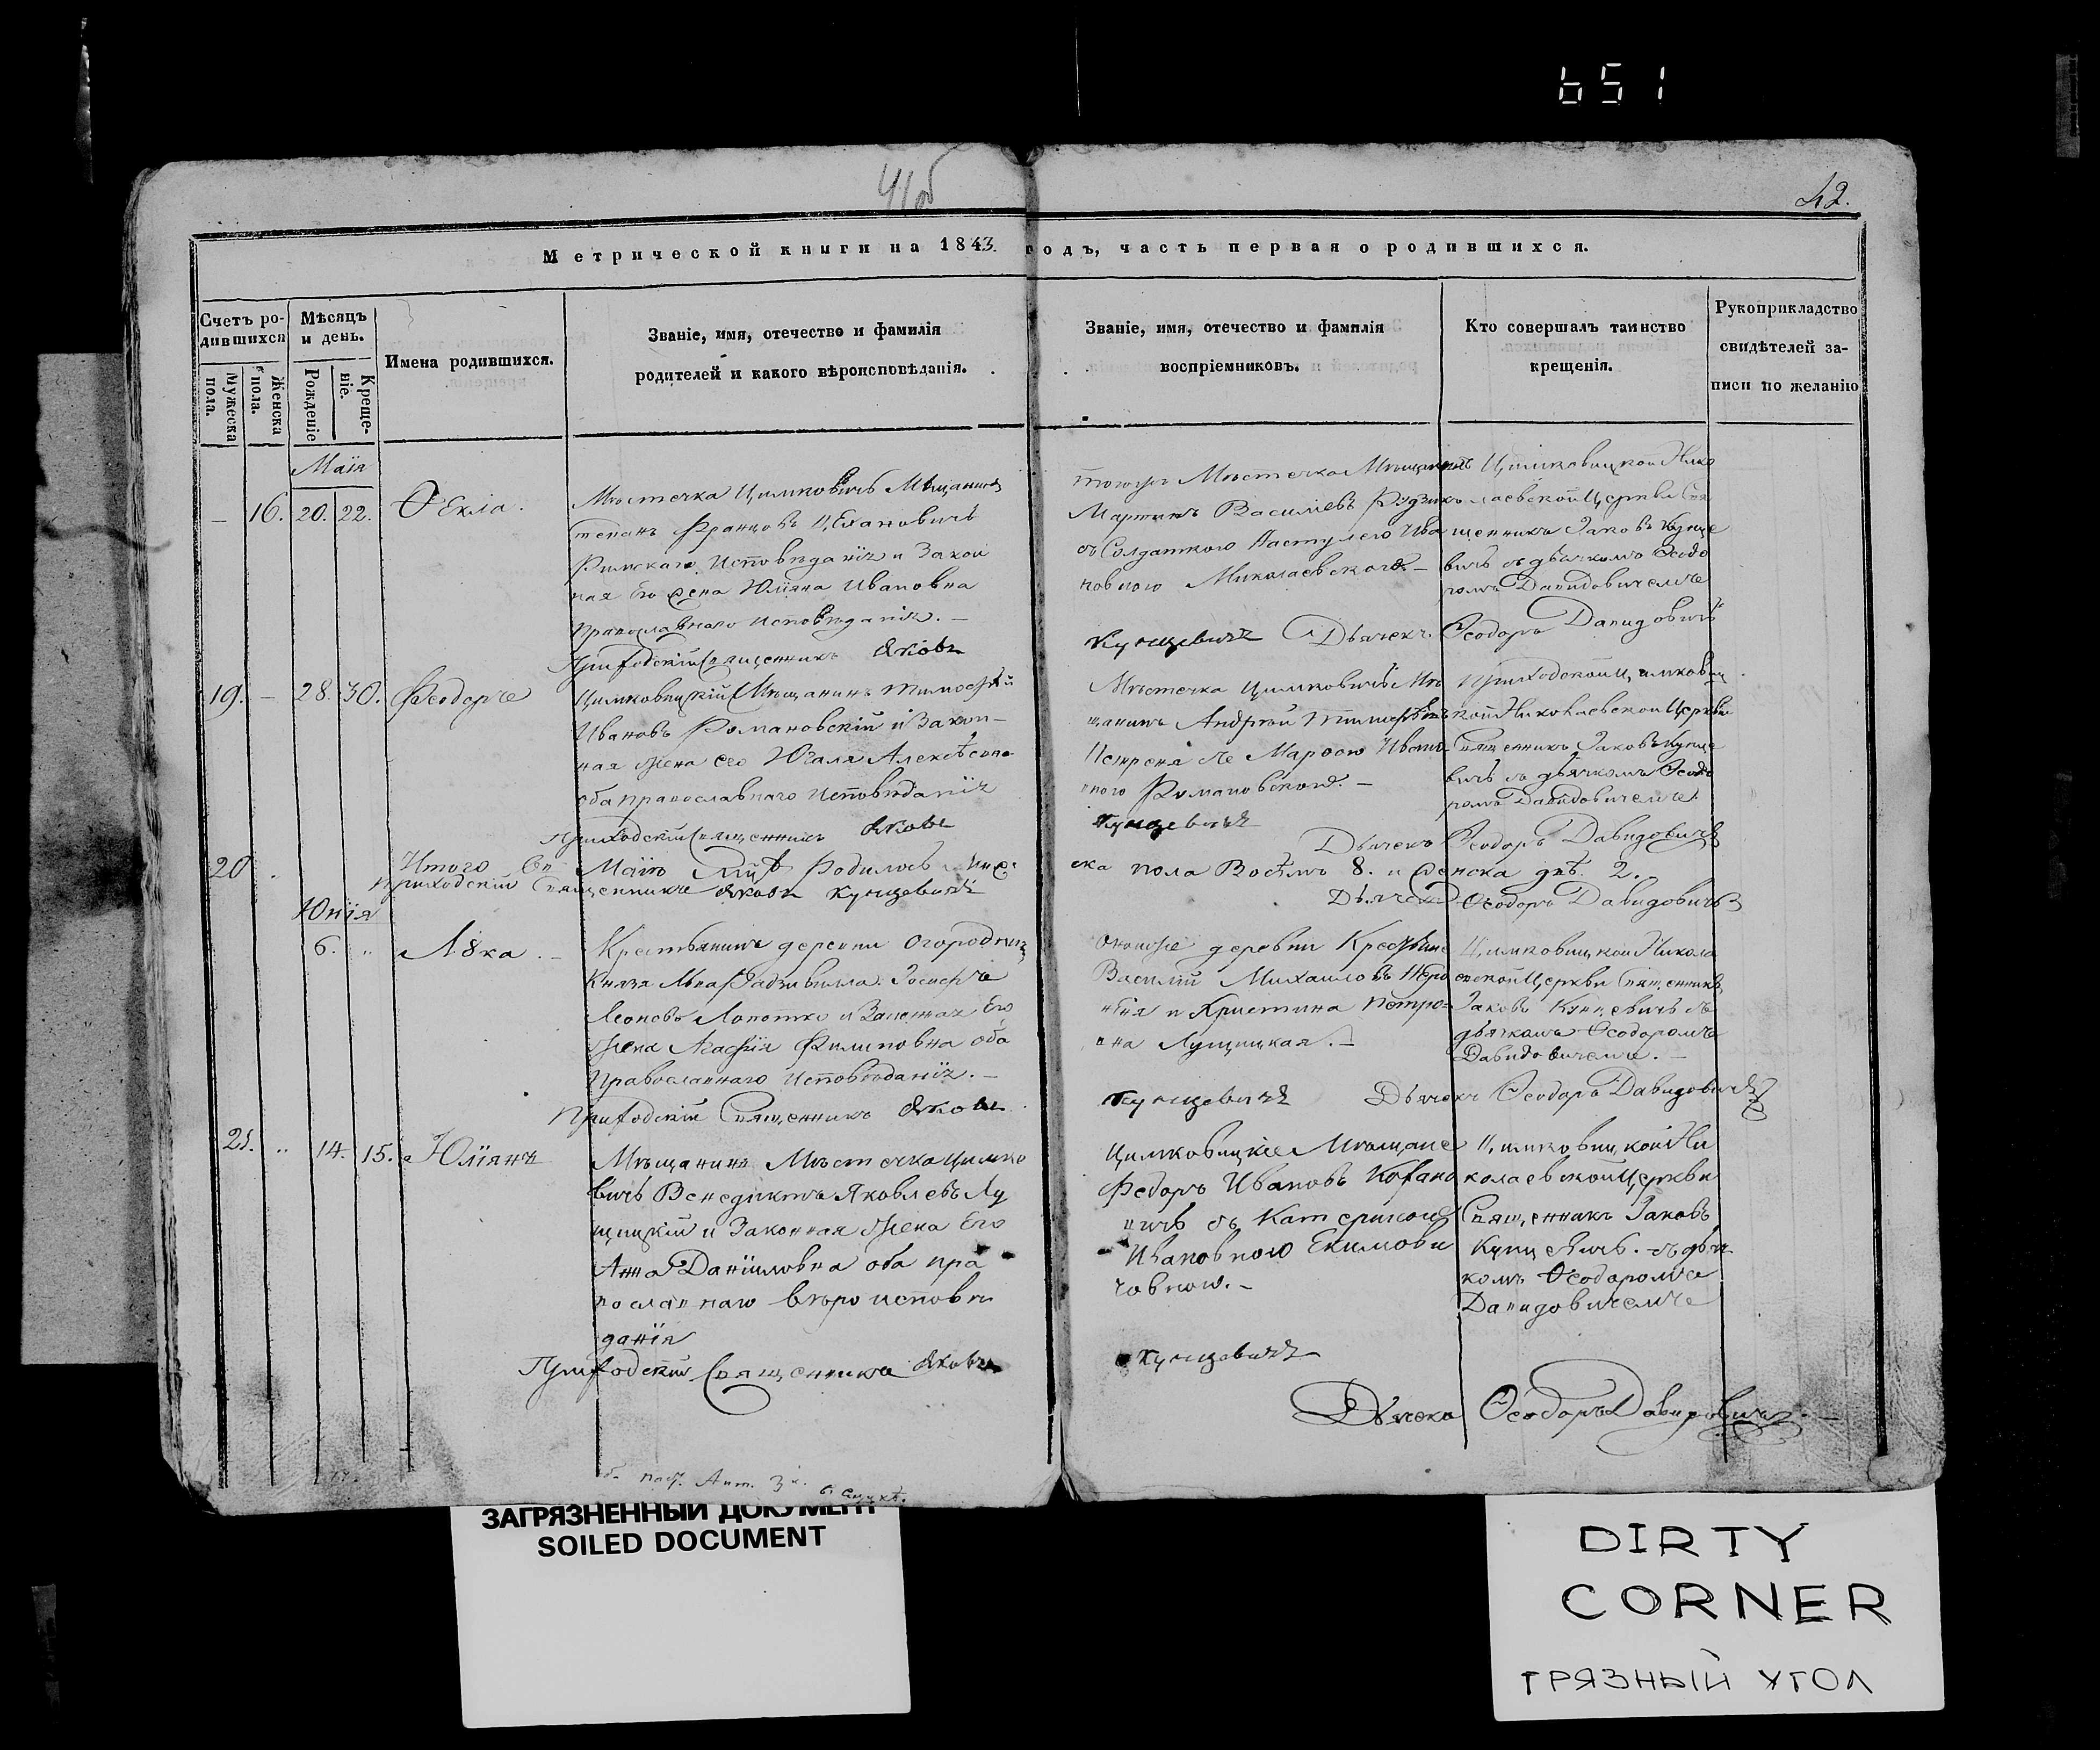 651
41 об
42.
Метрической книги на 1843. годъ, часть первая о родившихся.
Счетъ ро-
дившихся
Мужеска пола.
Женска пола.
Мѣсяцъ
и день.
Рожденіе
Креще-
ніе.
Имена родившихся.
Званіе, имя, отечество и фамилія
родителей и какого вѣроисповѣданія.
Званіе, имя, отечество и фамилія
воспріемниковъ.
Кто совершалъ таинство
крещенія.
Рукоприкладство
свидѣтелей за-
писи по желанію
Маія
— 16. 20. 22. Ѳекла.
Мѣстечка Цимковичь Мѣщанинъ
Францовъ
Римскаго Исповѣданія и Закон
ная Его Жена Юліяна Ивановна
Православнаго Исповѣданія. —
Приходскій Священникъ Яковъ
тогожъ Мѣстечка
Мартинъ Василіевъ
съ Ива
новною Миколаевскою —
Кунцевичъ Дьячекъ
Цимковицкой Нико
лаевской Церкви Свя
щенникъ Іаковъ Кунце
вичъ съ дьячкомъ Ѳеодо
ромъ Давидовичемъ
Ѳеодоръ Давидовичъ
19. — 28. 30. Ѳеодоръ
Цимковицкій Мѣщанинъ Тимоѳей
Ивановъ Романовскій и Закон-
ная Жена его
оба православнаго Исповѣданія
Приходскій Священникъ Яковъ
Мѣстечка Цимковичь Мѣ
щанинъ Андрей
Романовскою. —
Кунцевичъ
Дьячекъ
Приходской Цимковиц
кой Николаевской Церкви
Священникъ Іаковъ Кунце
вичъ съ дьячкомъ Ѳеодо
ромъ Давидовичемъ.
Ѳеодоръ Давидовичъ
20
Итого Маію родилось
ска пола Восѣмъ 8. и Женска двѣ. 2.
Приходскій Священникъ Яковъ Кунцевичъ
Дьячекъ Ѳеодоръ Давидовичъ
Юнія
6. „ Лука. —
Крестьянинъ деревни
Князя Льва Радзивилла Іосифъ
Леоновъ и Законная Его
Жена Агафія Филиповна оба
Православнаго Исповѣданія. —
Приходскій Священникъ Яковъ
деревни
Василій Михаиловъ
и Христина Петро-
вна Лущицкая. —
Кунцевичъ Дьячекъ Ѳеодоръ Давидовичъ
Цимковицкой Никола
евской Церкви Священникъ
Іаковъ Кунцевичъ съ
дьячкомъ Ѳеодоромъ
Давидовичемъ. —
21. „ 14. 15. Юліянъ
Мѣщанинъ Мѣстечка Цимко
вичь Венедиктъ Яковлевъ Лу
щицкій и Законная Жена Его
Анна Даніиловна оба пра
вославнаго вѣроисповѣ
данія
Приходскій Священникъ Яковъ
Цимковицкіе Мѣщане
Федоръ Ивановъ Кохано
вичь съ Катериною
Ивановною Екимови
човною. —
Кунцевичъ
Цимковицкой Ни
колаевской Церкви
Священникъ Іаковъ
Кунцевичъ. съ дьяч
комъ Ѳеодоромъ
Давидовичемъ
Дьячекъ Ѳеодоръ Давидовичъ. —
ЗАГРЯЗНЕННЫЙ ДОКУМЕНТ
SOILED DOCUMENT
DIRTY
CORNER
ГРЯЗНЫЙ УГОЛ